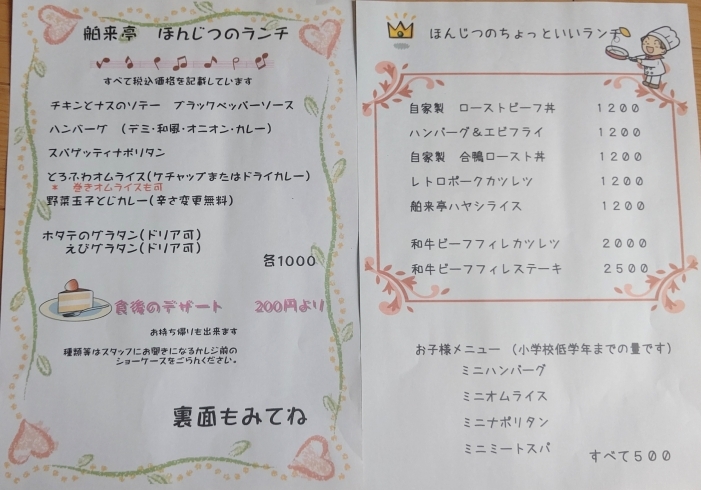 舶来亭 ほんじつのランチ
すべて税込価格を記載しています
チキンとナスのソテー ブラックペッパーソース
ハンバーグ (デミ・和風・オニオン・カレー)
スパゲッティナポリタン
とろふわオムライス(ケチャップまたはドライカレー)
* 巻きオムライスも可
野菜玉子とじカレー(辛さ変更無料)
ホタテのグラタン(ドリア可)
えびグラタン(ドリア可)
各1000
食後のデザート 200円より
お持ち帰りも出来ます
種類等はスタッフにお聞きになるかレジ前の
ショーケースをごらんください。
裏面もみてね
ほんじつのちょっといいランチ
自家製 ローストビーフ丼 1200
ハンバーグ&エビフライ 1200
自家製 合鴨ロースト丼 1200
レトロポークカツレツ 1200
舶来亭ハヤシライス 1200
和牛ビーフフィレカツレツ 2000
和牛ビーフフィレステーキ 2500
お子様メニュー (小学校低学年までの量です)
ミニハンバーグ
ミニオムライス
ミニナポリタン
ミニミートスパ
すべて500